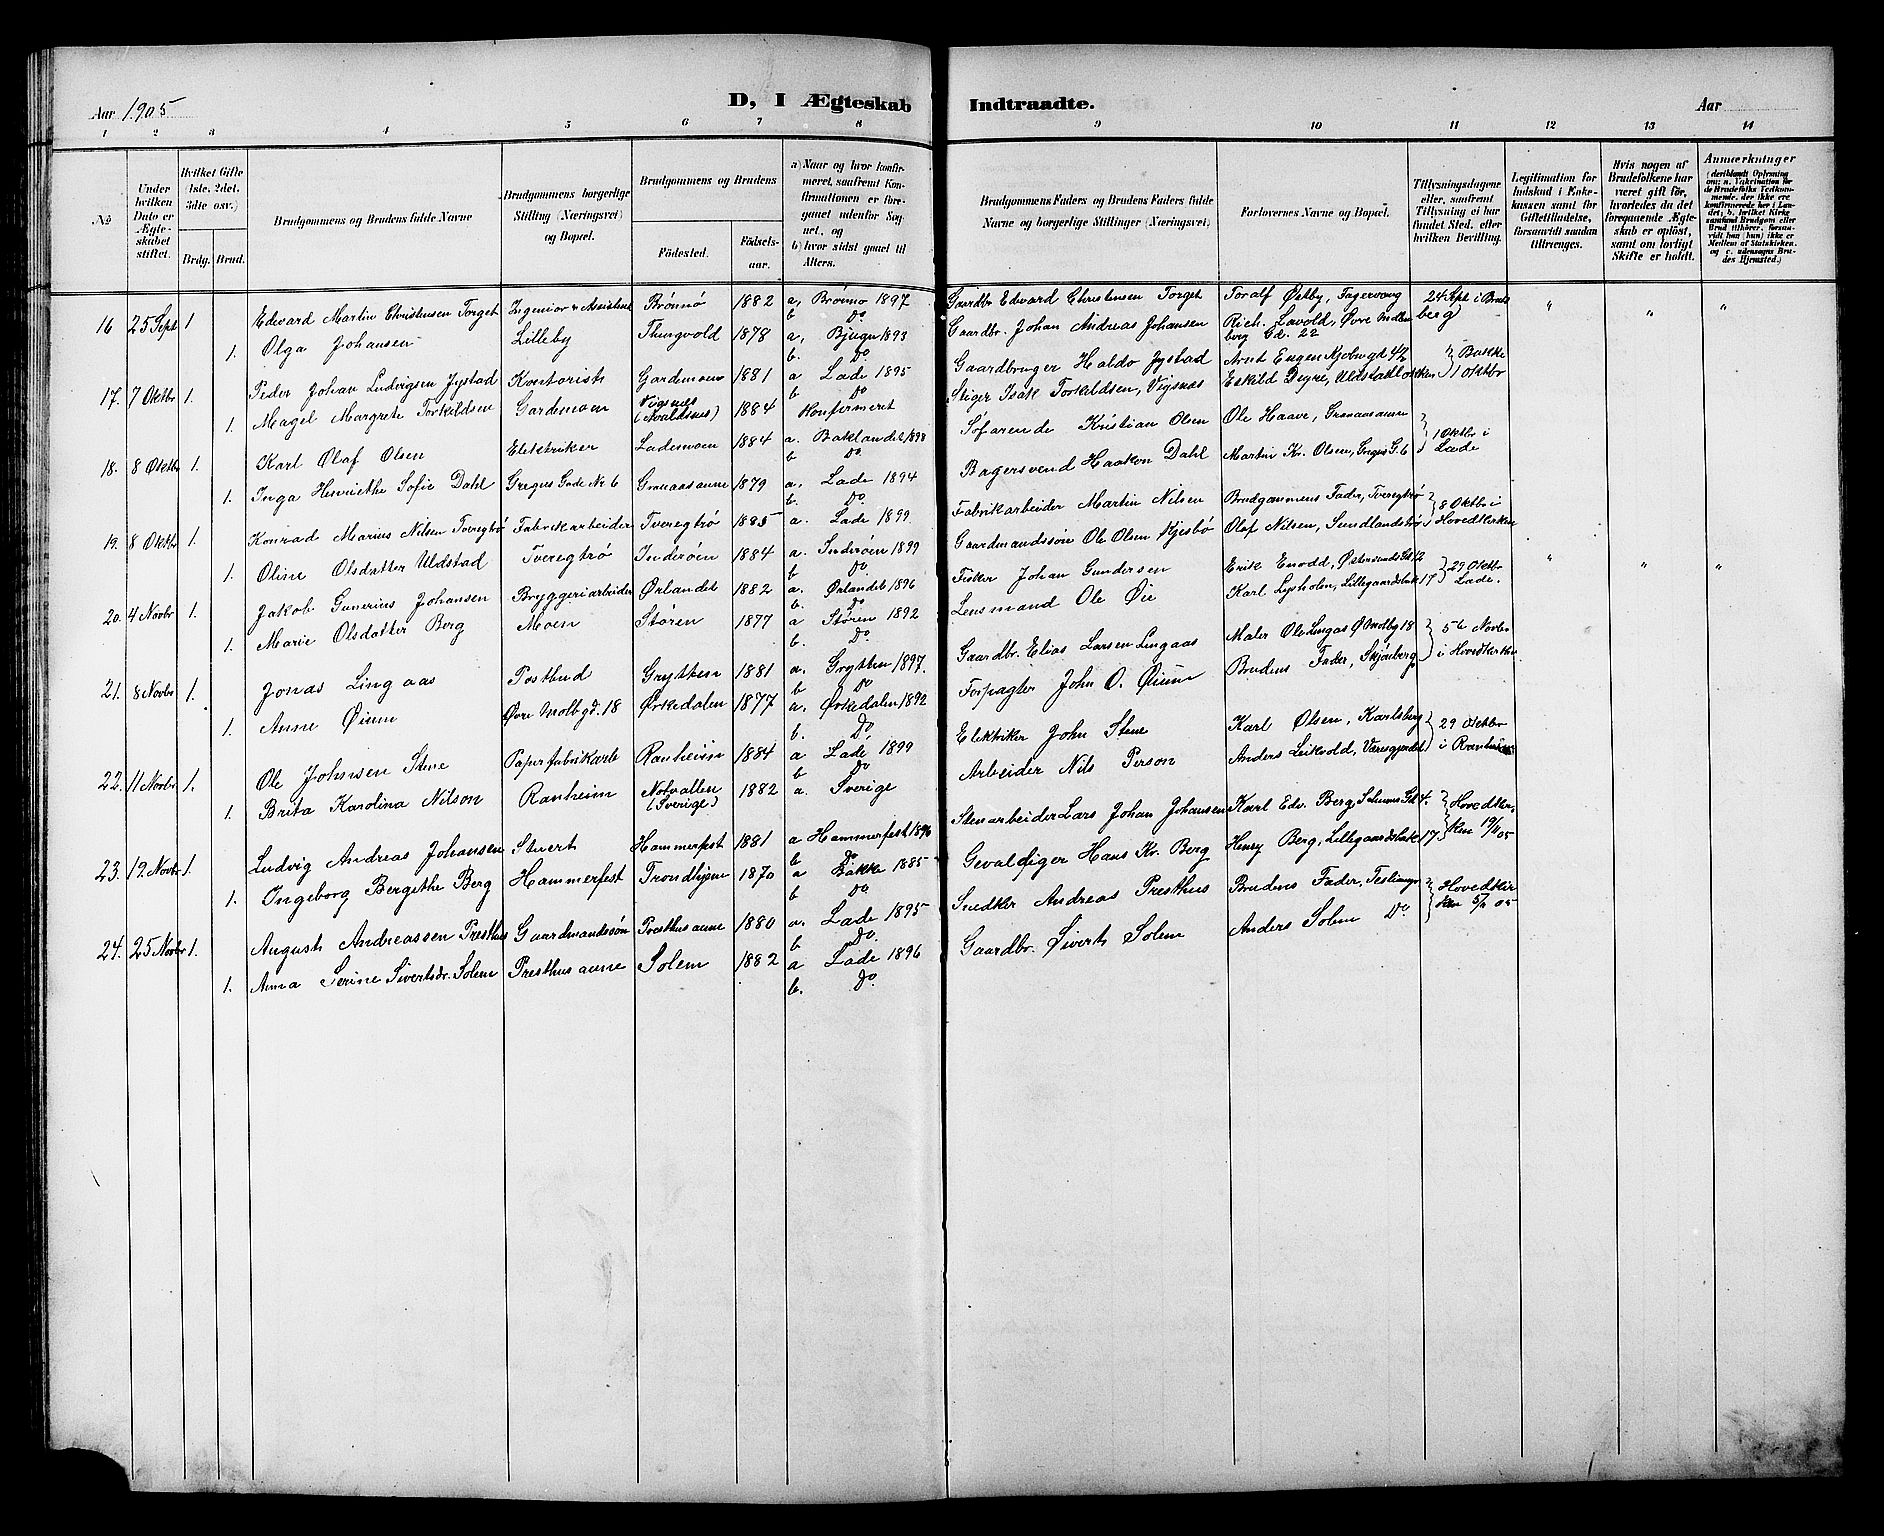 Aar 1905 D, I Ægteskab Indtraadte. Aar
1 2 3 4 5 6 7 8 9 10 11 12 13 14
№
Under hvilken Dato er Ægteskabet stiftet.
Hvilket Gifte (1ste, 2det, 3die osv.)
Brdg. Brud.
Brudgommens og Brudens fulde Navne
Brudgommens borgerlige Stilling (Næringsvei) og Bopæl.
Brudgommens og Brudens
Födested. Födselsaar.
a) Naar og hvor konfirmeret, saafremt Konfirmationen er foregaaet udenfor Sognet, og
b) hvor sidst gaaet til Alters.
Brudgommens Faders og Brudens Faders fulde Navne og borgerlige Stillinger (Næringsvei)
Forlovernes Navne og Bopæl.
Tillysningsdagene eller, saafremt Tillysning ei har fundet Sted, efter hvilken Bevilling.
Legitimation for Indskud i Enkekassen samt for Giftetilladelse, forsaavidt saadan tiltrænges.
Hvis nogen af Brudefolkene har været gift för, hvorledes da det foregaaende Ægteskab er oplöst, samt om lovligt Skifte er holdt.
Anmærkninger (deriblandt Oplysning om: a. Vakcination for de Brudefolks Vedkommende, der ikke ere konfirmerede her i Landet; b. hvilket Kirkesamfund Brudgom eller Brud tilhörer, forsaavidt han (hun) ikke er Medlem af Statskirken, og c. udensogns Brudes Hjemsted.)
16 25 Sept 1 Edvard Martin Christensen Torget Ingeniør & Assistent Brönnö 1882 a, Brönnö 1897 b Do Gaardbr Edvard Christensen Torget Toralf Østby, Fagervang 24 Sept i Bakkeberg " " "
1. Olga Johansen Lilleby 1878 a, Bjugn 1893 b. Do. Gaardbr. Johan Andreas Johansen Rich. Lavold, Øvre Møllenberg Gd. 22
17. 7 Oktbr 1. Peder Johan Ludvigsen Jystad Kontorist Gardemoen 1881 a Lade 1895 b Do Gaardbruger Haldo Jystad Arnt Engen Kjöbmgd 42 } Bakke 1 Oktbr
1. Magel Margrete Torkildsen Gardemoen Vigsnes (Avaldsnes) 1884 Konfirmeret Stiger Isak Torkildsen, Vigsnes Eskild Degre,
18. 8 Oktbr 1. Karl Olaf Olsen Elektriker Lademoen 1884 a. Baklandet 1898 b Do. Söfarende Kristian Olsen Ole Haave, Granaasaunne } 1 Oktbr i Lade
1. Inga Henriethe Sofie Dahl Gregus Gade No 6 Granaasaunne 1879 a. Lade 1894 b. Do Bagersvend Haakon Dahl Martin Kr. Olsen, Gregus G. 6
19. 8 Oktbr 1. Konrad Marius Nilsen Tveregtrö Fabrikarbeider Tveregtrö 1885 a. Lade 1899 Fabrikarbeider Martin Nilsen Brudgommens Fader, Tveregtrö } 8 Oktbr i Hovedkirken
1. Oline Olsdatter Uldstad Tveregtrö Inderöen 1884 a. Inderöen 1899 b Do Gaardmandssön Ole Olsen Olaf Nilsen, Sundlandströ
20. 4 Novbr 1. Jakob Gunerius Johansen Bryggeriarbeider Ørlandet 1882 a. Ørlandet 1896 b. Do Fisker Johan Gundersen Erik Enodd, Østersunds Gd 12 } 29 Oktbr Lade. " " "
1. Marie Olsdatter Berg Moen Stören 1877 a Stören 1892 b. Do Lensmand Ole Øie Karl Lysholm, Lillegaardsbak 17
21. 8 Novbr 1. Jonas Lingaas Postbud Grytten 1881 a. Grytten 1897. b Do Gaardbr. Elias Larsen Lingaas Maler Ole Lingas Ø Molbg 18 } 5te Novbr i Hovedkirken
1. Anne Øium Øvre Molbgd. 18 Ørkedalen 1877 a. Ørkedalen 1892 b. Do. Forpagter John O. Øium Brudens Fader, Skjönberg
22. 11 Novbr. 1. Ole Johnsen Stene Papirfabrikarb Ranheim 1884 a Lade 1899 b Do Elektriker John Stene Karl Olsen, Karlsberg } 29 Oktbr i Ranheim
1. Brita Karolina Nilson Ranheim (Sverige) 1882 a. Sverige Arbeider Nils Person Anders Leikvold,
23. 12 Novbr 1. Ludvig Andreas Johansen Stuert Hammerfest 1881 a Hammerfest 1896 b Do Stenarbeider Lars Johan Johansen Karl Edv. Berg, Gd 4. } Hovedkirken 19/11 05
1. Ingeborg Bergithe Berg Hammerfest Trondhjem 1870 a Bakke 1885 b Do Gevaldiger Hans Kr. Berg Henry Berg, Lillegaardsbak 17
24. 25 Novbr 1. August Andreassen Presthus Gaardmandssön Presthusaune 1880 a. Lade 1895 b Do. Snedker Andreas Presthus Brudens Fader, } Hovedkirken 5/11 05
1. Anna Serine Sivertsdr. Solem Presthusaune Solem 1882 a Lade 1896 b. Do. Gaardbr. Sivert Solem Anders Solem Do